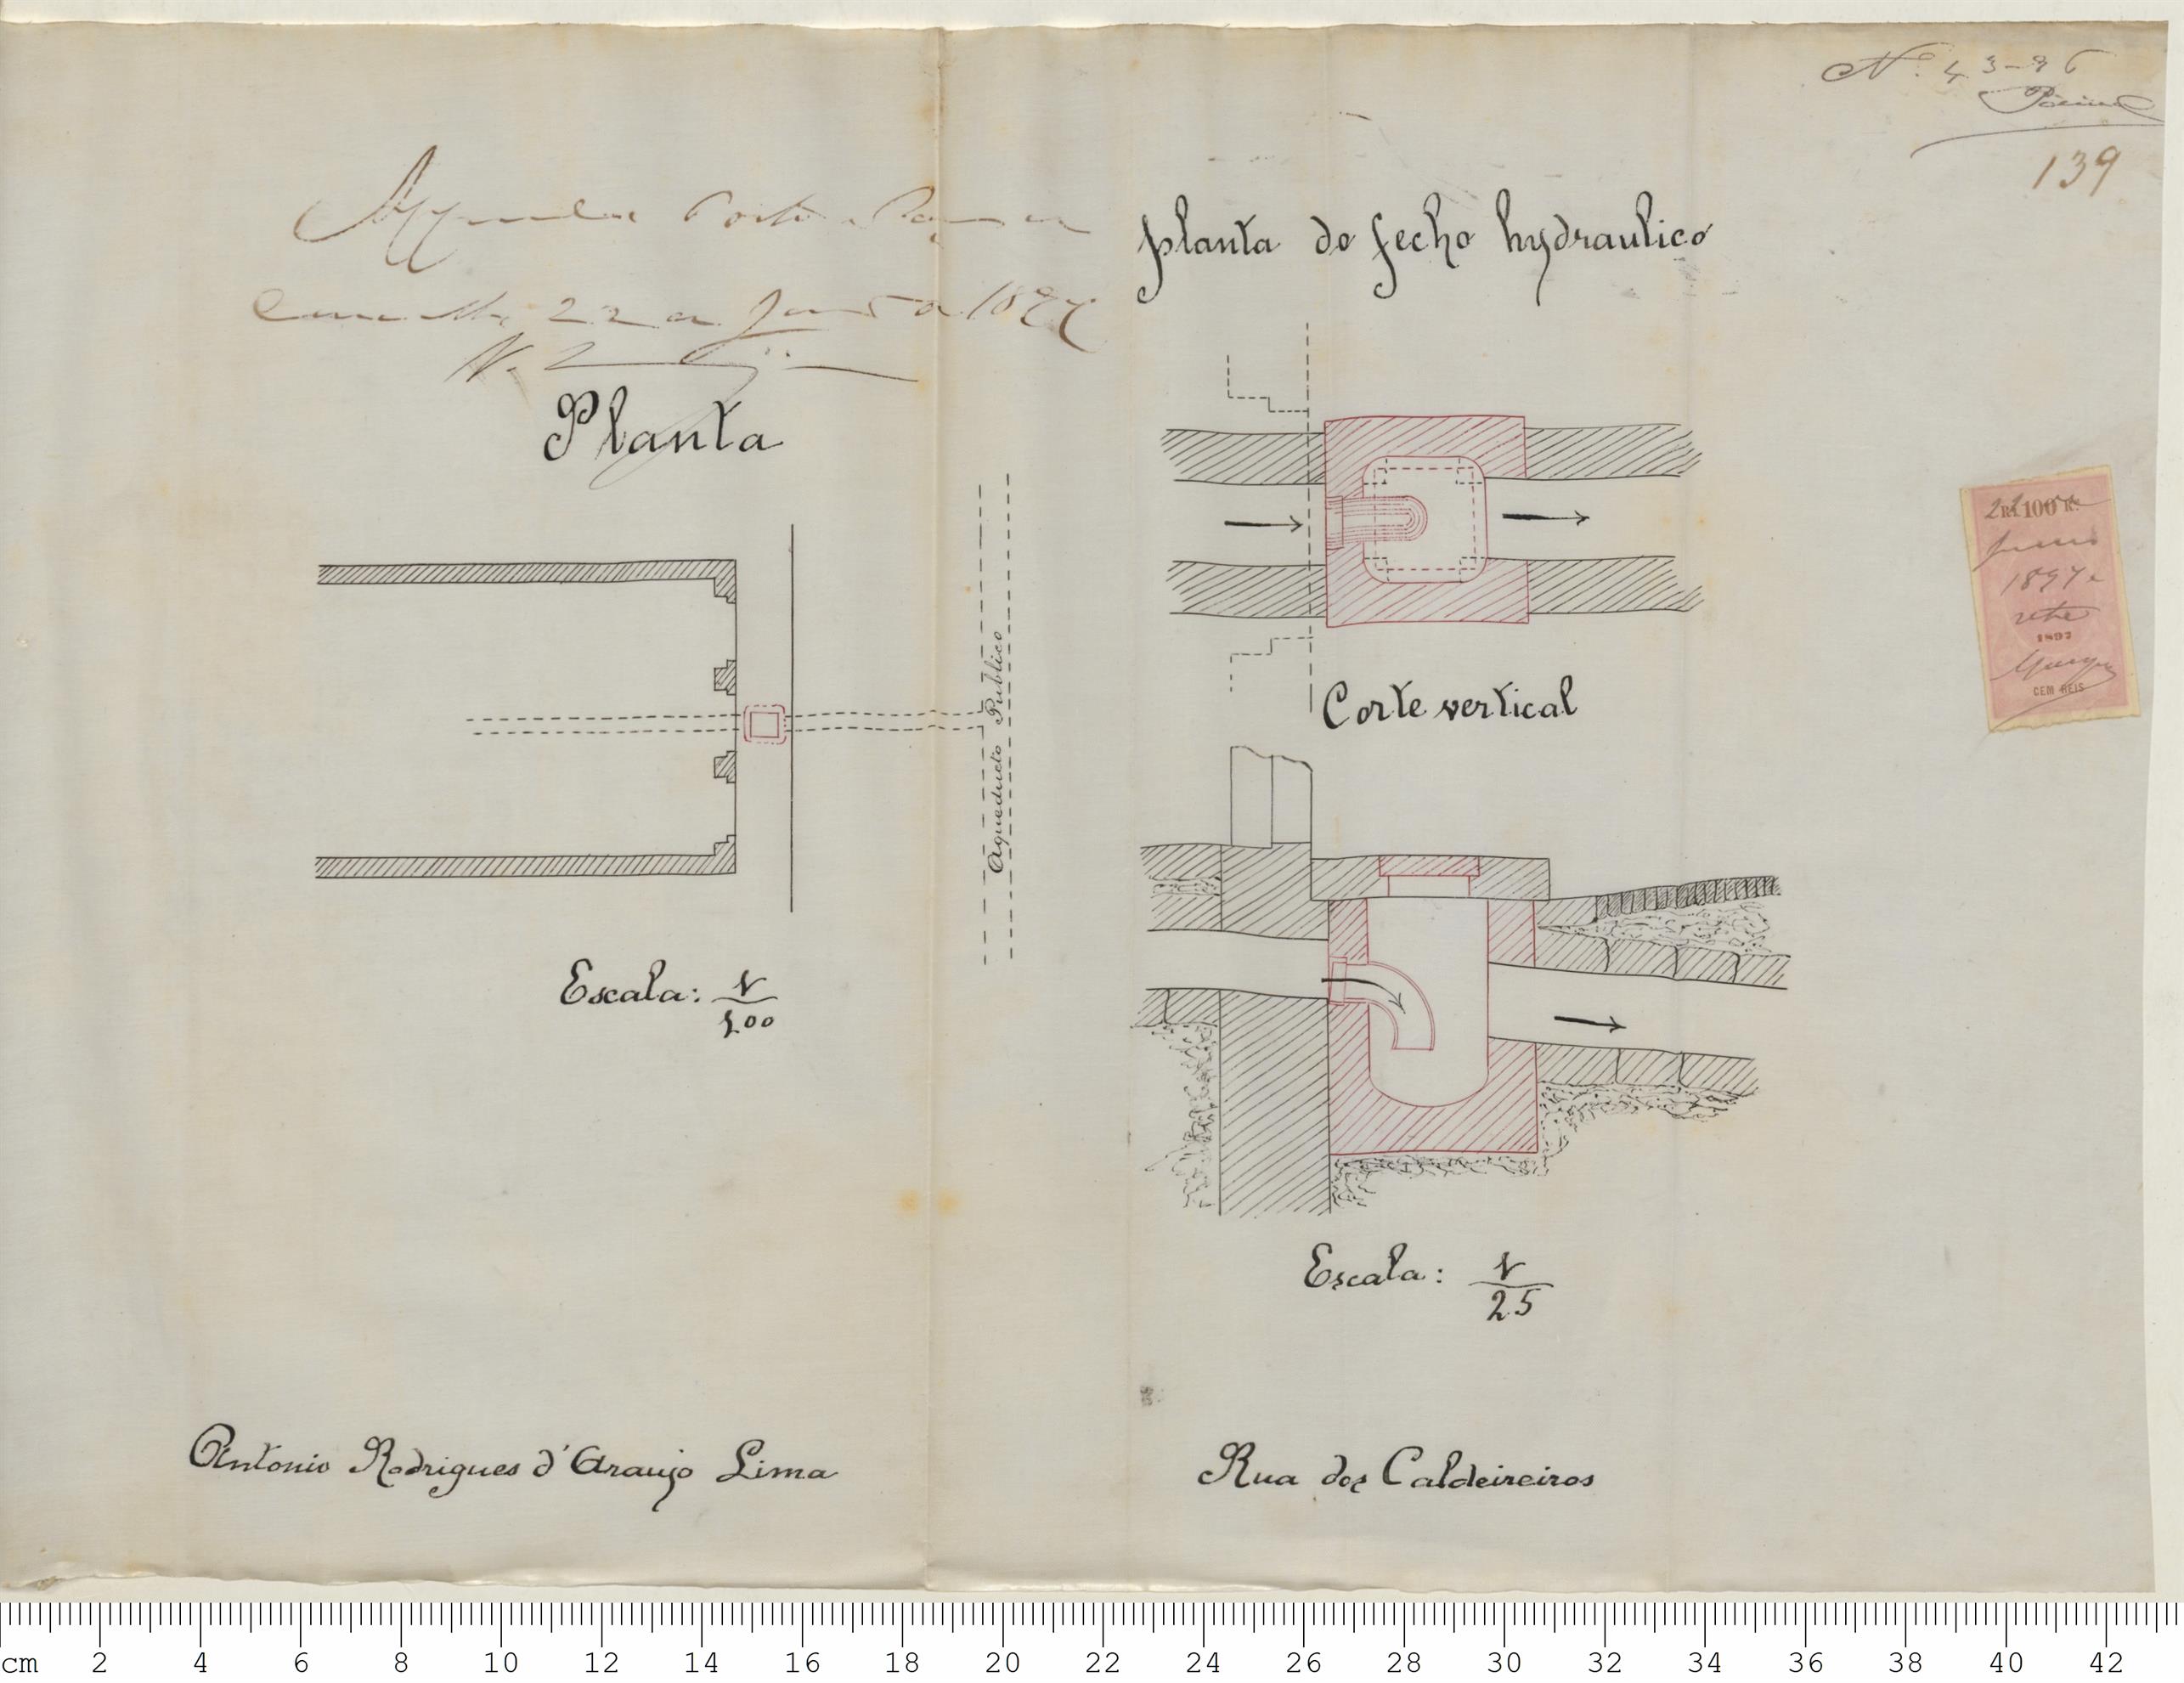 Nº 43-96
139
Approvada Porto e Paços do
Concelho, 22 de Junho de 1897
Planta
planta do fecho hydraulico
Aqueducto Publico
Corte vertical
100 Rs
Junho
1897
1897
CEM REIS
Escala: 1/100
Escala: 1/25
Antonio Rodrigues d'Araujo Lima
Rua dos Caldeireiros
cm 2 4 6 8 10 12 14 16 18 20 22 24 26 28 30 32 34 36 38 40 42